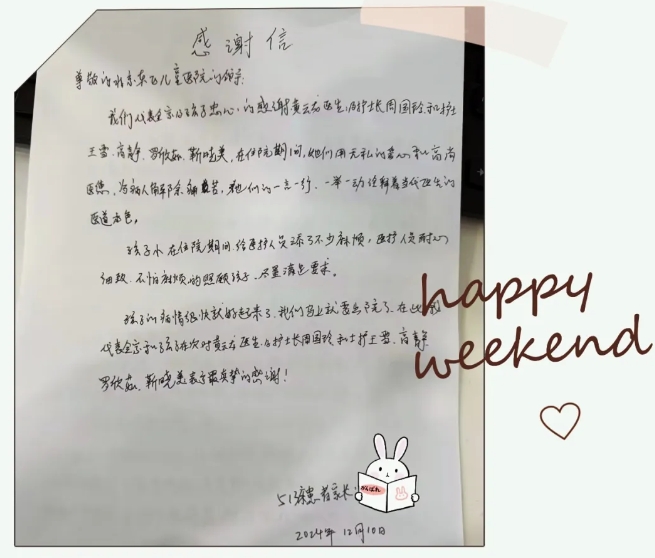 感谢信
尊敬的北京京都儿童医院的领导:
我们代表全家以及孩子忠心的感谢黄云龙医生,及护士长周国玲和护士
王雪、高静、罗欣茹、靳晓美,在住院期间,她们用无私的爱心和高尚
医德,为病人解除病苦,她们的一言一行、一举一动诠释着当代医生的
医道本色。
孩子小在住院期间给医护人员添了不少麻烦,医护人员耐心
细致、不怕麻烦的照顾孩子、尽量满足要求。
孩子的病情很快就好起来了,我们马上就要出院了,在此我
代表全家和孩子在次对黄云龙医生、护士长周国玲和士护王雪、高静
罗欣茹、靳晓美表示最真挚的感谢!
happy
weekend
がんばれ
513床患者家长
2024年12月10日